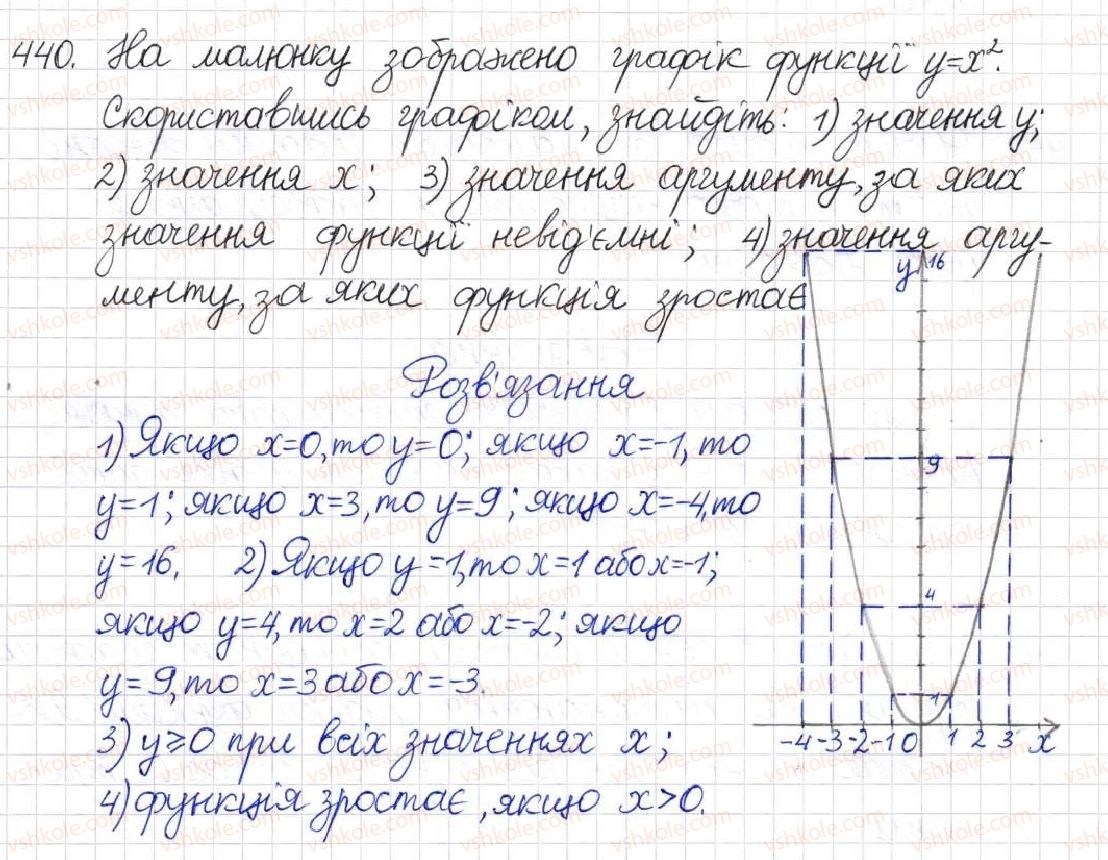 440. На малюнку зображено графік функції y=x².
Скориставшись графіком, знайдіть: 1) значення y;
2) значення x; 3) значення аргументу, за яких
значення функції невід'ємні; 4) значення аргу-
менту, за яких функція зростає
Розв'язання
1) Якщо x=0, то y=0; якщо x=-1, то
y=1; якщо x=3, то y=9; якщо x=-4, то
y=16. 2) Якщо y=1, то x=1 або x=-1;
якщо y=4, то x=2 або x=-2; якщо
y=9, то x=3 або x=-3.
3) y≥0 при всіх значеннях x;
4) функція зростає, якщо x>0.
y 16
9
4
1
-4 -3 -2 -1 0 1 2 3 x
vshkole.com